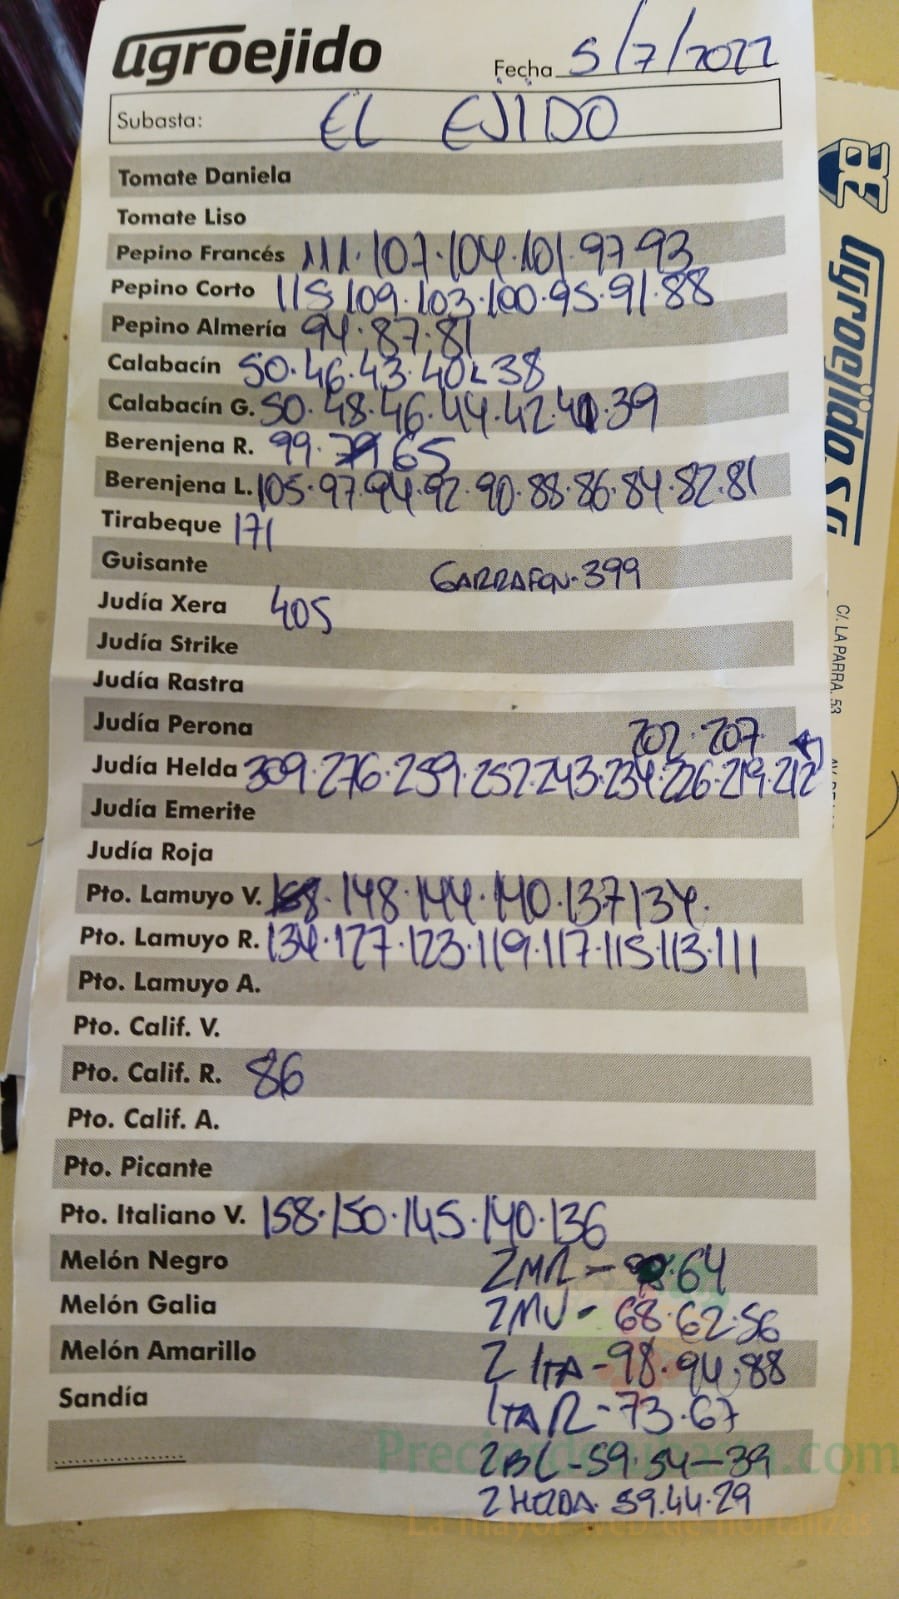 agroejido
Fecha 5/7/2022
Subasta: EL EJIDO
Tomate Daniela
Tomate Liso
Pepino Francés 111·107·104·101·97·93
Pepino Corto 115·109·103·100·95·91·88
Pepino Almería 94·87·81
Calabacín 50·46·43·40·38
Calabacín G. 50·48·46·44·42·41·39
Berenjena R. 99·79·65
Berenjena L. 105·97·94·92·90·88·86·84·82·81
Tirabeque 171
Guisante
GARRAFON·399
Judía Xera 405
Judía Strike
Judía Rastra
Judía Perona
202·207
Judía Helda 309·276·259·252·243·234·226·219·212
Judía Emerite
Judía Roja
Pto. Lamuyo V. 148·144·140·137·134·
Pto. Lamuyo R. 134·127·123·119·117·115·113·111
Pto. Lamuyo A.
Pto. Calif. V.
Pto. Calif. R. 86
Pto. Calif. A.
Pto. Picante
Pto. Italiano V. 158·150·145·140·136
Melón Negro
2MR - 64
Melón Galia
2MV - 68·62·56
Melón Amarillo
2 ITA - 98·94·88
Sandía
ITA R - 73·67
2BL - 59·54-39
2 HELDA· 59·44·29
Preciosdesubasta.com
La mayor web de hortalizas
agroejido S.
C/. LA PARRA, 53